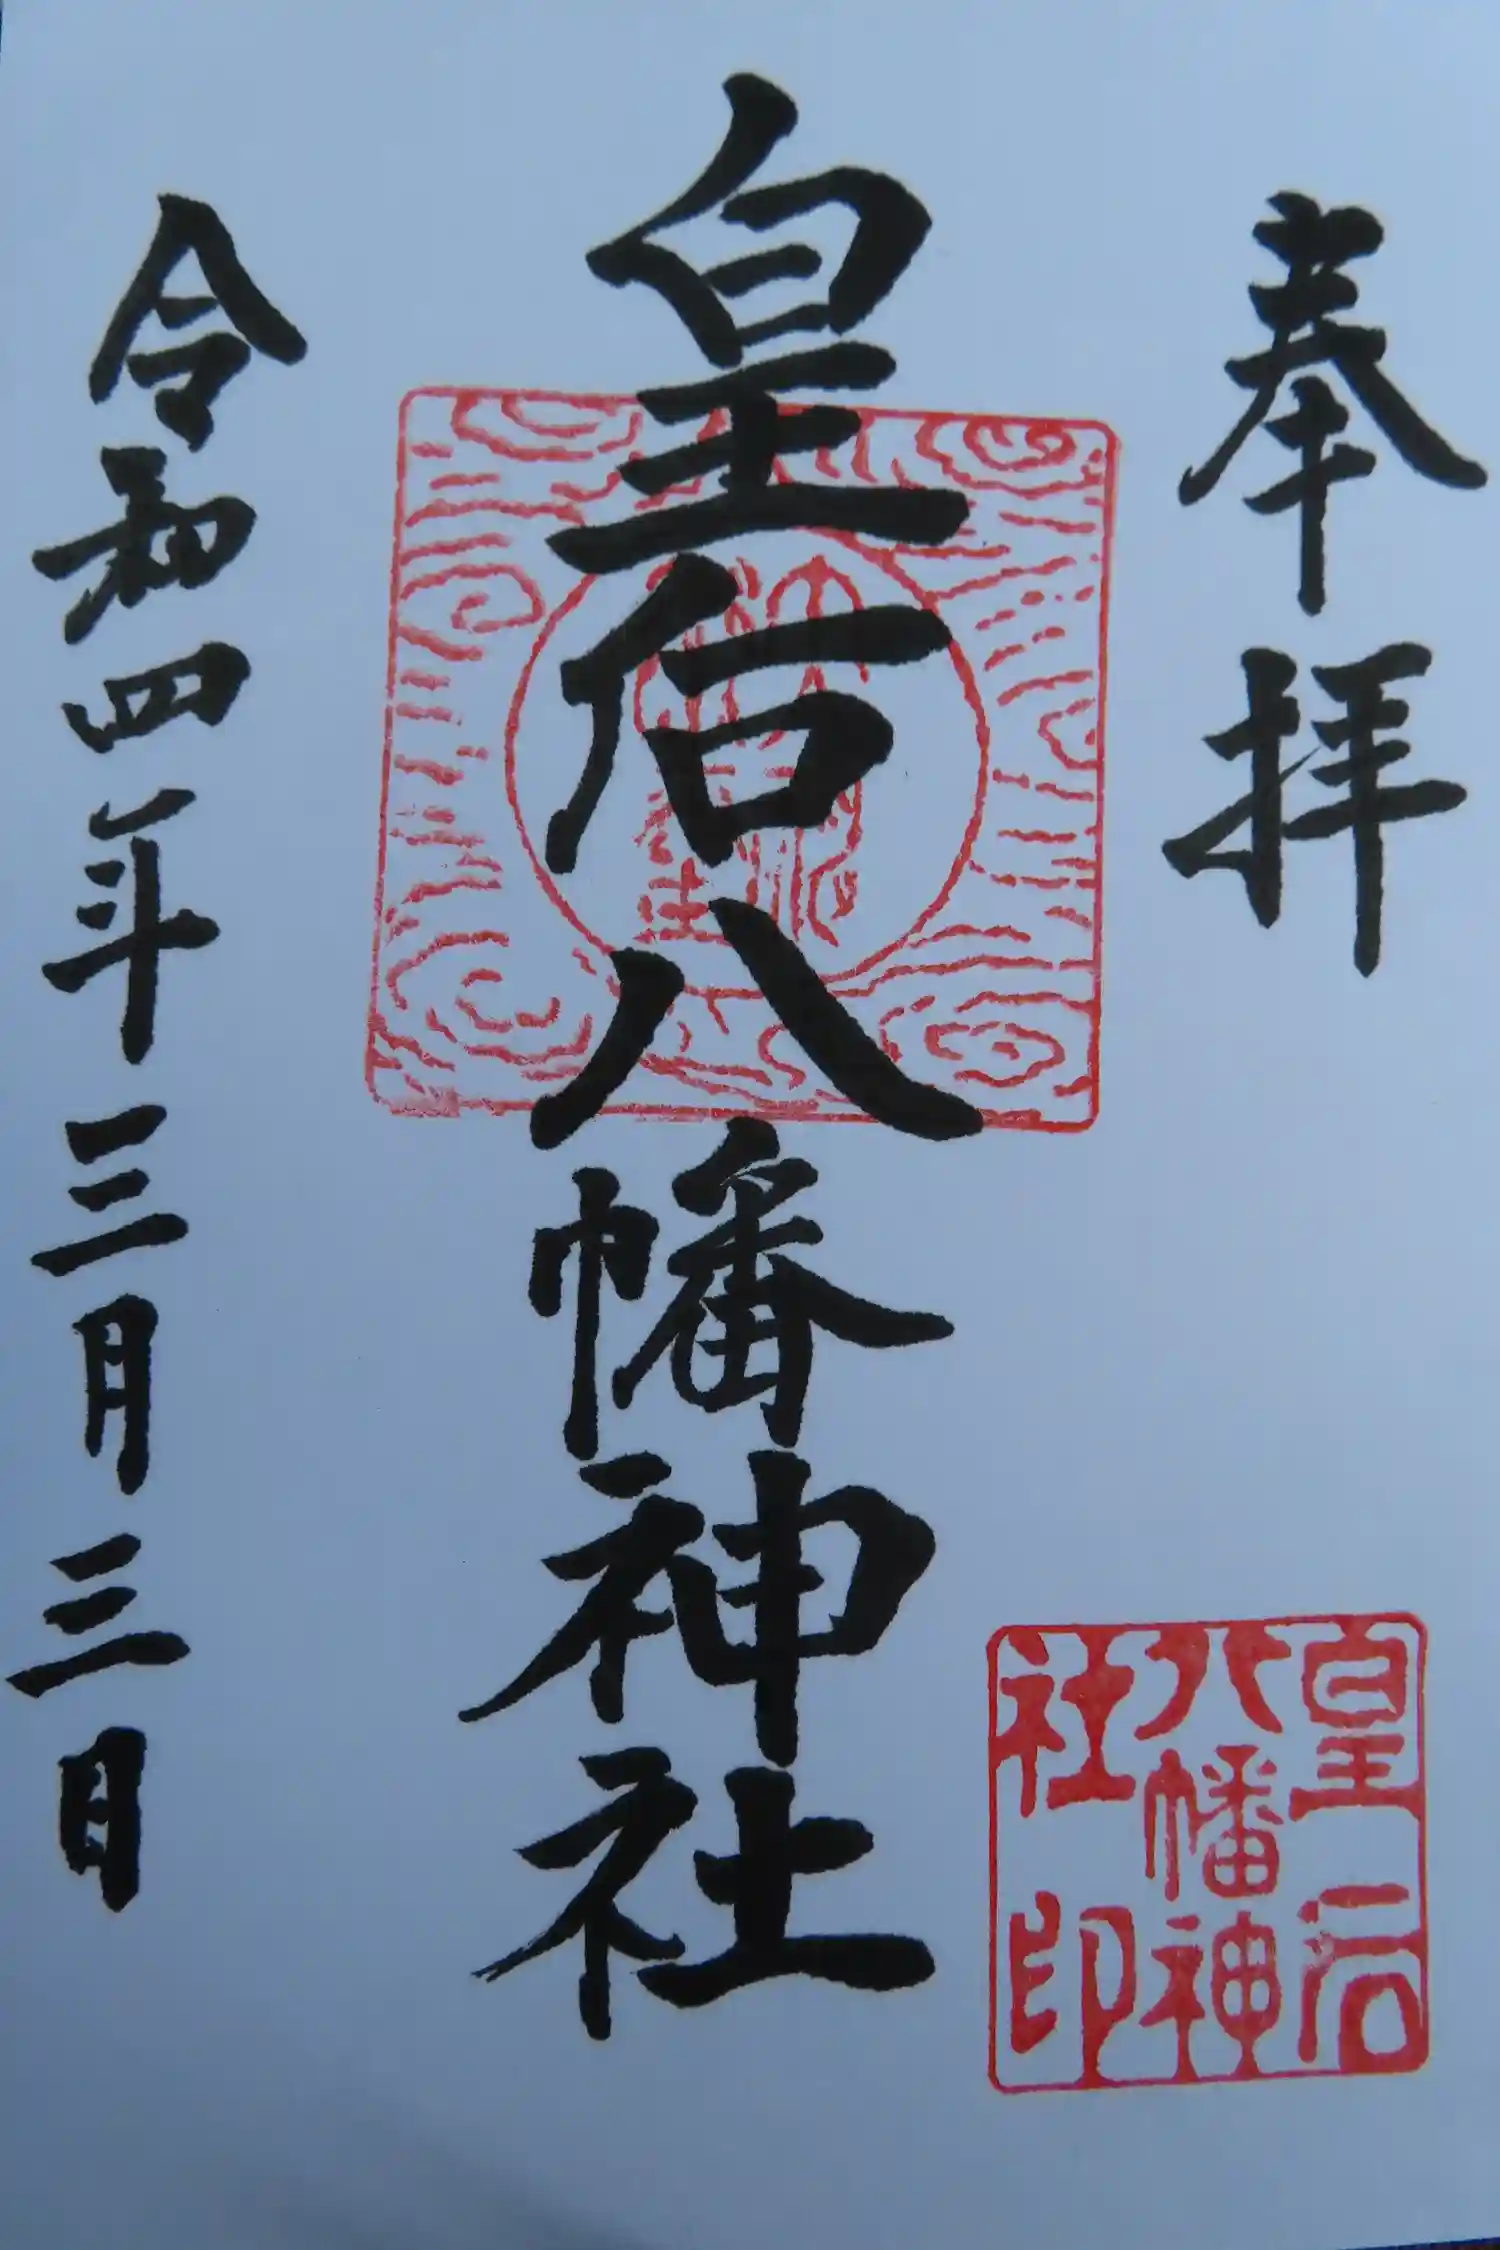 奉拝
皇后八幡神社
令和四年三月三日
皇后
八幡神
社印